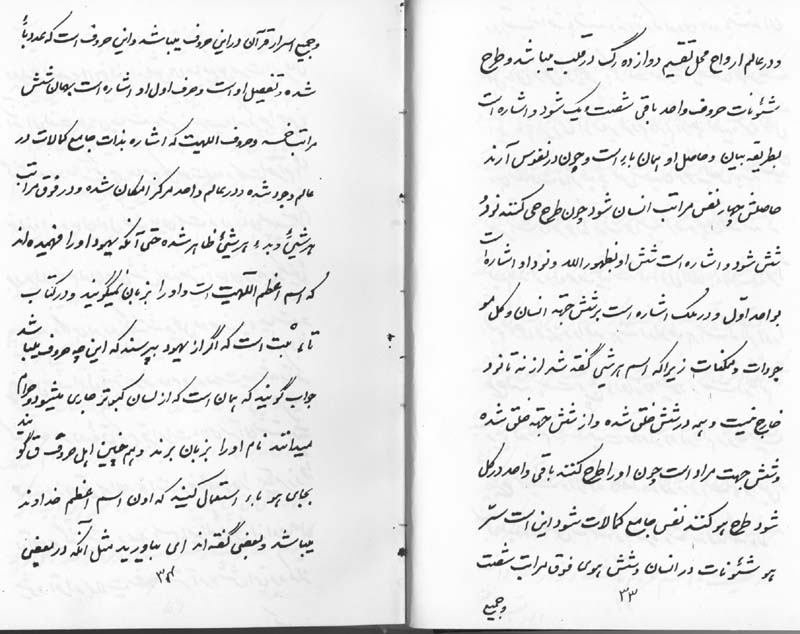 و در عالم ارواح محل تقسیم دوازده رگ در قلب میباشد و طرح
شئونات حروف واحد باقی شصت یک شود و اشاره است
بطریقه بیان و حاصل او همان باء است و چون در نفوس آرند
حاصلش چهار نفس مراتب انسان شود چون طرح حی کنند نود
شش شود و اشاره است شش او بظهور الله و نود او اشاره است
بواحد اول و در ملک اشاره است بر شش جهة انسان و کل مو
جودات و ممکنات زیرا که اسم هر شیئ گفته شد از نه تا نود
خارج نیست و همه در شش خلق شده و از شش جهة خلق شده
و شش جهت مراد است چون او را طرح کنند باقی واحد در کل
شود طرح هو کنند نفس جامع کمالات شود این است سرّ
هو شئونات در انسان و شش هوی فوق مراتب شصت
۳۳
وجمیع
وجمیع اسرار قرآن در این حروف میباشد و این حروف است که عدد باء
شده و تفصیل او است و حرف اول او اشاره است بهمان شش
مراتب خمسه و حروف اللهیت که اشاره بذات جامع کمالات در
عالم وجود شده و در عالم واحد مرکز امکان شده و در فوق مراتب
هر شیئ و بدء هر شیئ ظاهر شده حتی آنکه یهود او را فهمیده‌اند
که اسم اعظم اللهیت است و او را بزبان نمیگویند و در کتاب
ثبت است که اگر از یهود بپرسند که این چه حروف میباشد
جواب گویند که همان است که از لسان کبوتر جاری میشود و حرام
میدانند نام او را بزبان برند و همچنین اهل حروف ق گویند
بجای هو باء استعمال کنید که اون اسم اعظم خداوند
میباشد و بعضی گفته‌اند ای بیاورید مثل آنکه در بعضی
۳۴